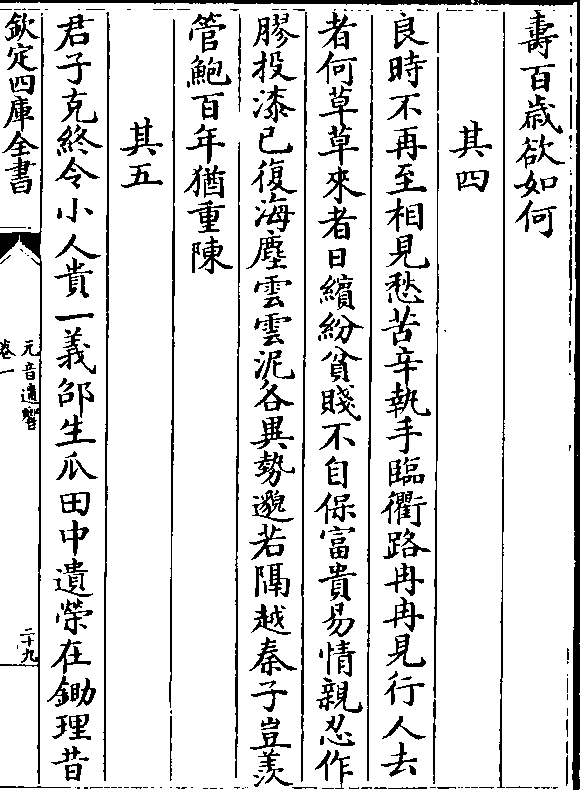 壽百歳欲如何
其四
良時不再至相見愁苦辛執手臨衢路冉冉見行人去
者何草草來者日繽紛貧賤不自保富貴易情親忍作
膠投漆已復海塵雲雲泥各異勢邈若隔越秦子豈羨
管鮑百年猶重陳
其五
君子克終令小人貴一義邵生瓜田中遺榮在鋤理昔
欽定四庫全書
元音遺響
卷一
二十九